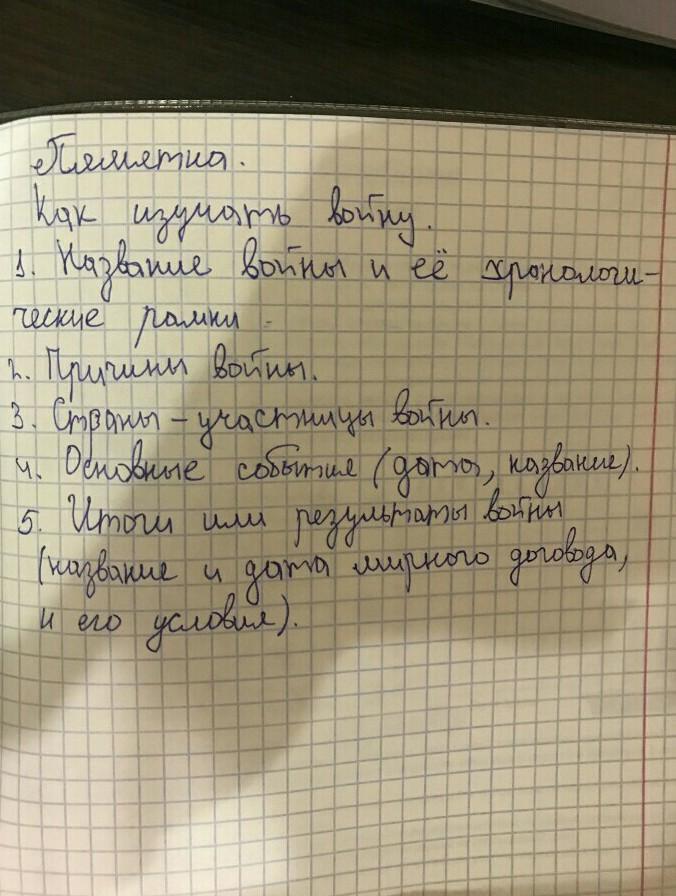 Памятка.
Как изучать войну.
1. Название войны и её хронологи-
ческие рамки
2. Причины войны.
3. Страны - участницы войны.
4. Основные события (дата, название).
5. Итоги или результаты войны
(название и дата мирного договода,
и его условия).